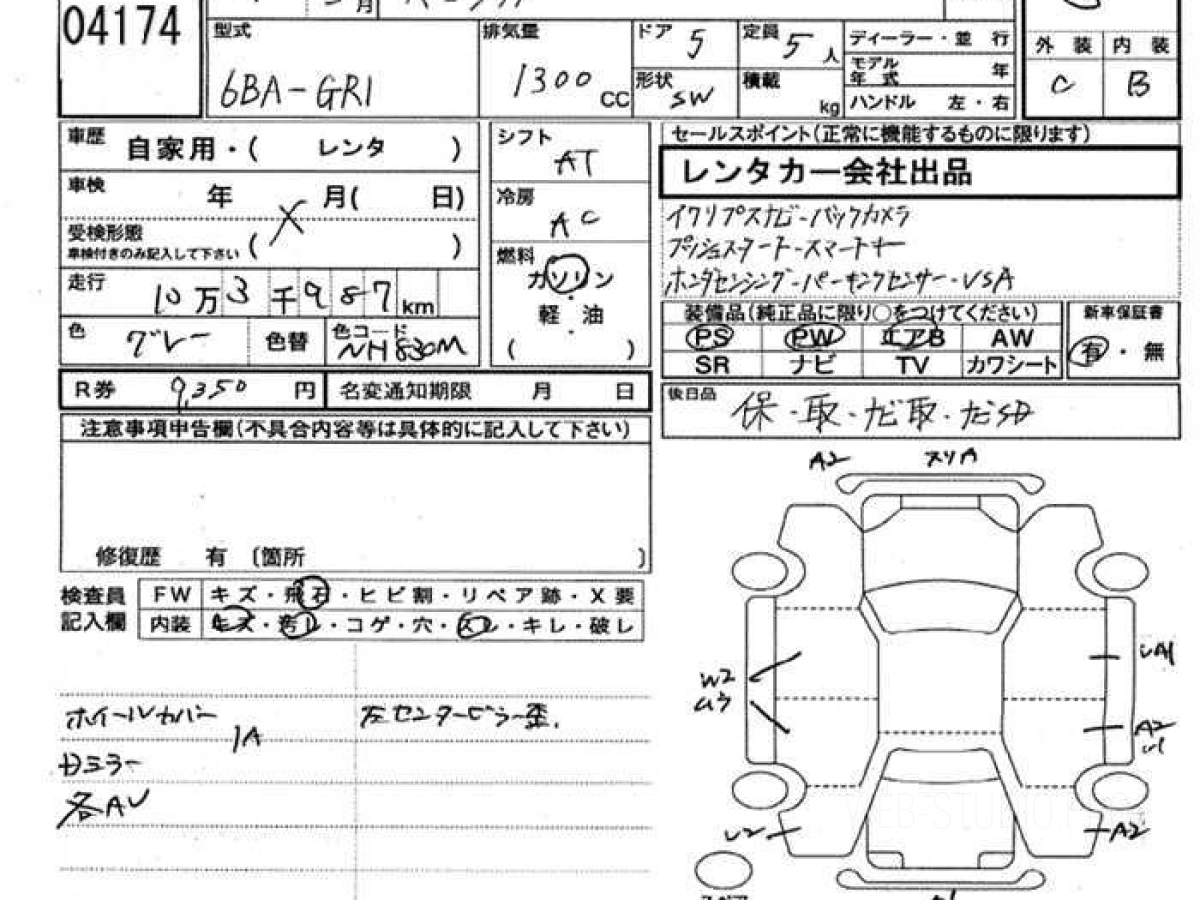 04174
型式
6BA-GR1
排気量
1300 CC
ドア 5
定員 5 人
形状 SW
積載 kg
ディーラー・並 行
モデル年式 年
ハンドル 左・右
外 装 内 装
C B
車歴 自家用・( レンタ )
車検 年 月( 日)
受検形態
車検付きのみ記入して下さい ( X )
走行 10万3千987km
色 グレー 色替 色コード NH830M
シフト
AT
冷房
AC
燃料
ガソリン
軽 油
( )
セールスポイント(正常に機能するものに限ります)
レンタカー会社出品
イクリプスナビ-バックカメラ
プッシュスタート-スマートキー
ホンダセンシング-パーキングセンサー・VSA
装備品(純正品に限り○をつけてください)
PS PW エアB AW
SR ナビ TV カワシート
新車保証書
有・無
R券 9,350 円 名変通知期限 月 日
後日品 保・取・ナビ取・ナビSD
注意事項申告欄(不具合内容等は具体的に記入して下さい)
修復歴 有 〔箇所 〕
検査員記入欄
FW キズ・飛石・ヒビ割・リペア跡・X要
内装 キズ・汚レ・コゲ・穴・スレ・キレ・破レ
ホイールカバー 左センターピラー歪.
1A
Dミラー
各AU
A2 スリA
W2
ムラ
A2
U2 A2